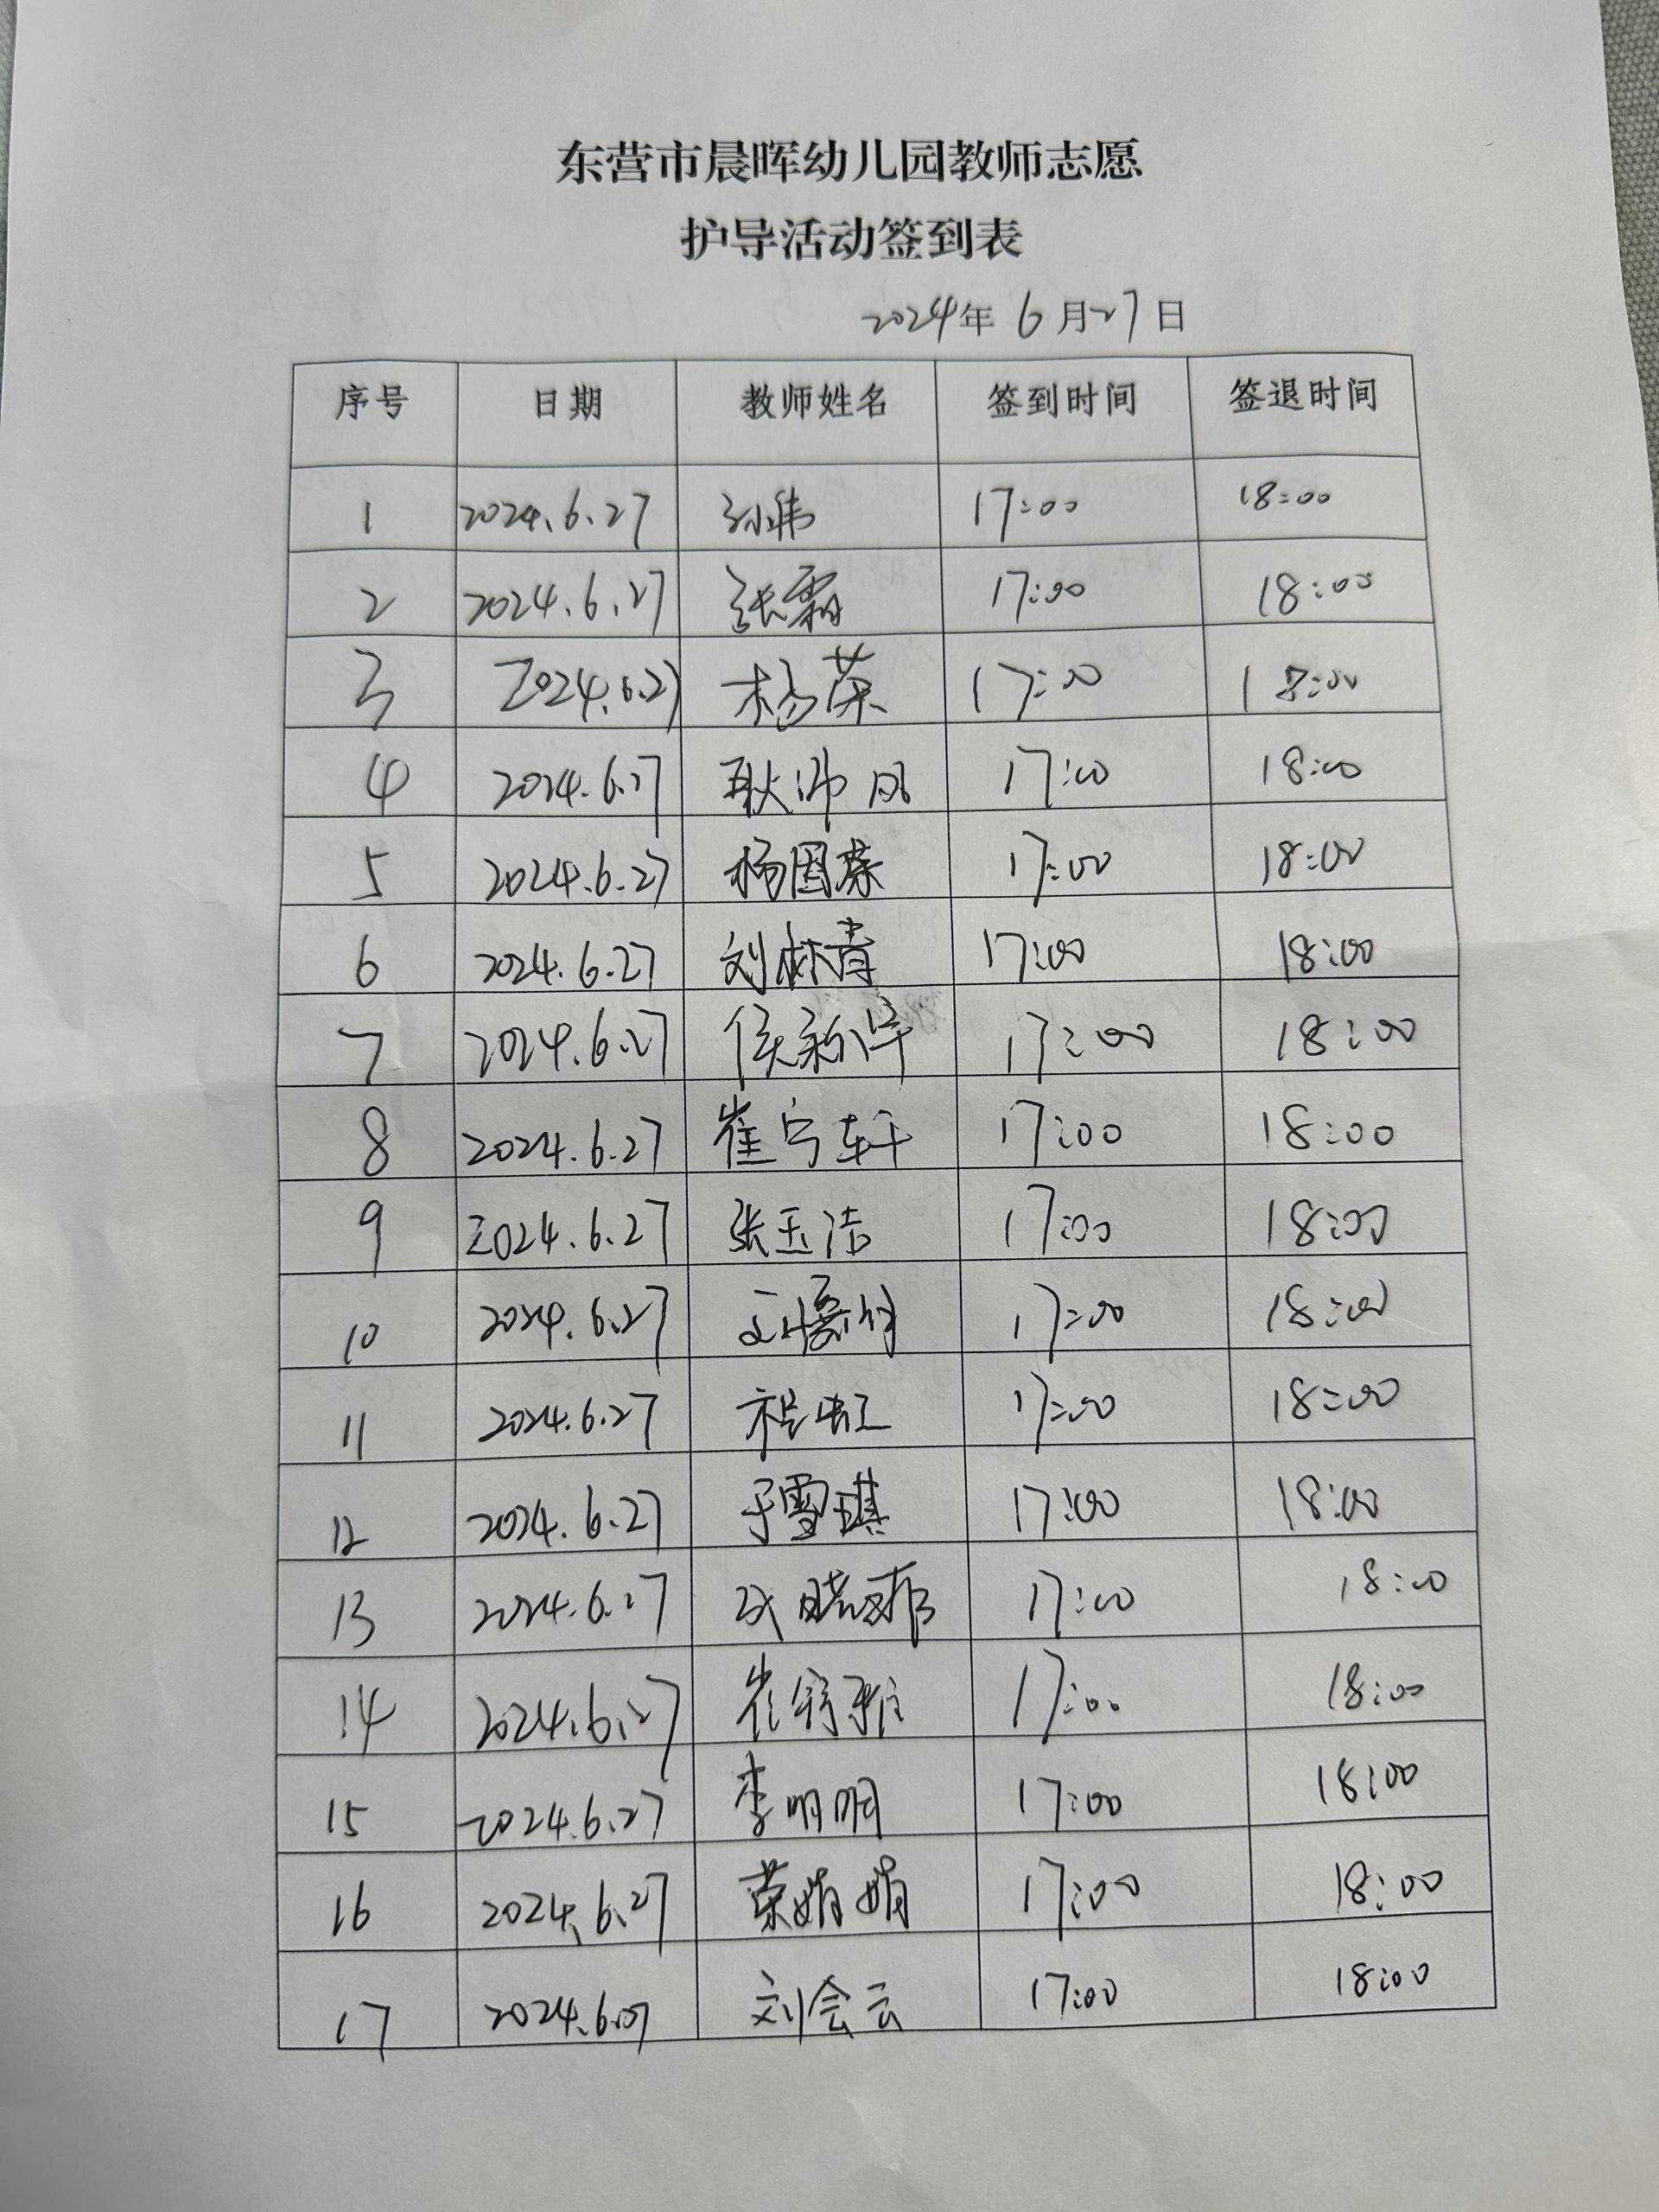 东营市晨晖幼儿园教师志愿
护导活动签到表
2024年 6月27日
序号 日期 教师姓名 签到时间 签退时间
1 2024.6.27 孙伟 17:00 18:00
2 2024.6.27 张霜 17:00 18:00
3 2024.6.27 杨荣 17:00 18:00
4 2024.6.27 17:00 18:00
5 2024.6.27 杨国荣 17:00 18:00
6 2024.6.27 刘林青 17:00 18:00
7 2024.6.27 侯新华 17:00 18:00
8 2024.6.27 崔宁轩 17:00 18:00
9 2024.6.27 张玉洁 17:00 18:00
10 2024.6.27 17:00 18:00
11 2024.6.27 程虹 17:00 18:00
12 2024.6.27 于雪琪 17:00 18:00
13 2024.6.27 17:00 18:00
14 2024.6.27 17:00 18:00
15 2024.6.27 李明明 17:00 18:00
16 2024.6.27 荣娟娟 17:00 18:00
17 2024.6.27 刘会云 17:00 18:00